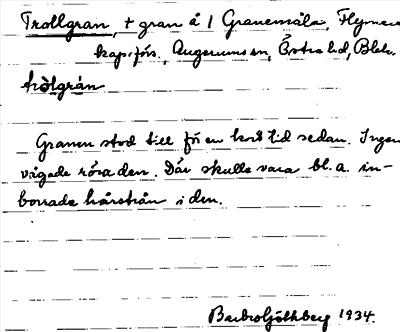 Trollgran, + gran å 1 Granemåla, Flymens
kap.förs., Augerums sn, Östra hd, Blek.
trȯlgrán
Granen stod till för en kort tid sedan. Ingen
vågade röra den. Där skulle vara bl.a. in-
borrade hårstrån i den.
Barbro Göthberg 1934.